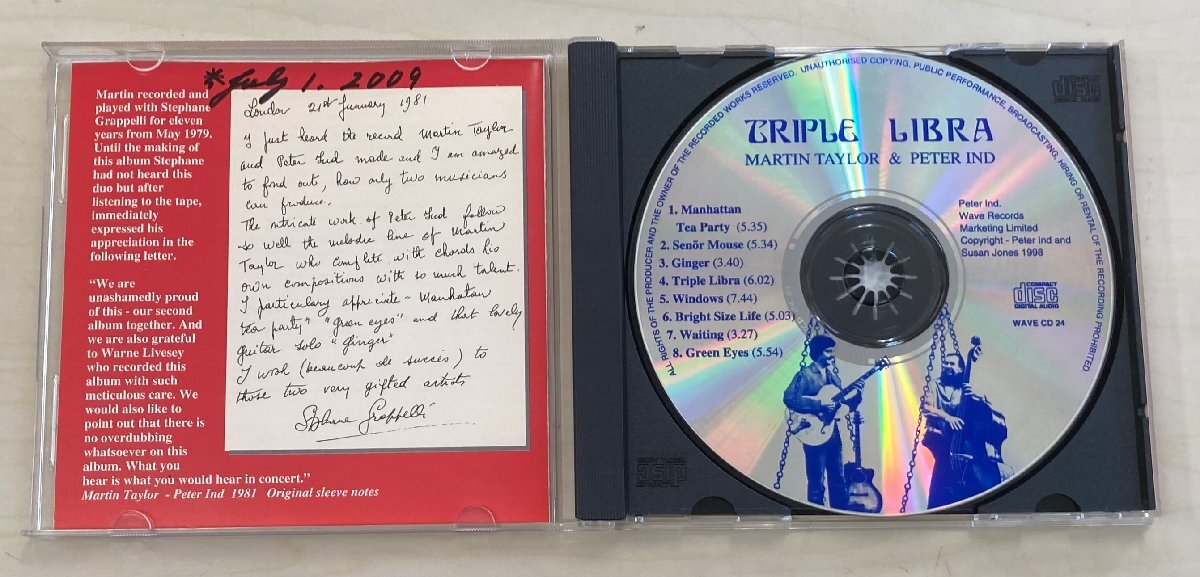 *July 1. 2009
Martin recorded and
played with Stephane
Grappelli for eleven
years from May 1979.
Until the making of
this album Stephane
had not heard this
duo but after
listening to the tape,
immediately
expressed his
appreciation in the
following letter.
“We are
unashamedly proud
of this - our second
album together. And
we are also grateful
to Warne Livesey
who recorded this
album with such
meticulous care. We
would also like to
point out that there is
no overdubbing
whatsoever on this
album. What you
hear is what you would hear in concert.”
Martin Taylor - Peter Ind 1981 Original sleeve notes
London 21st January 1981
I just heard the record Martin Taylor
and Peter Ind made and I am amazed
to find out, how only two musicians
can produce.
The intricate work of Peter Ind follow
so well the melodic line of Martin
Taylor who complete with chords his
own compositions with so much talent.
I particulary appreciate - Manhatan
tea party" "green eyes" and that lovely
guitar solo "ginger"
I wish (beaucoup de succès) to
those two very gifted artists
Stéphane Grappelli
ALL RIGHTS OF THE PRODUCER AND THE OWNER OF THE RECORDED WORKS RESERVED. UNAUTHORISED COPYING, PUBLIC PERFORMANCE, BROADCASTING, HIRING OR RENTAL OF THE RECORDING PROHIBITED
TRIPLE LIBRA
MARTIN TAYLOR & PETER IND
1. Manhattan
Tea Party (5.35)
2. Senõr Mouse (5.34)
3. Ginger (3.40)
4. Triple Libra (6.02)
5. Windows (7.44)
6. Bright Size Life (5.03)
7. Waiting (3.27)
8. Green Eyes (5.54)
Peter Ind.
Wave Records
Marketing Limited
Copyright - Peter Ind and
Susan Jones 1998
COMPACT
disc
DIGITAL AUDIO
WAVE CD 24
COMPACT
disc
DIGITAL AUDIO